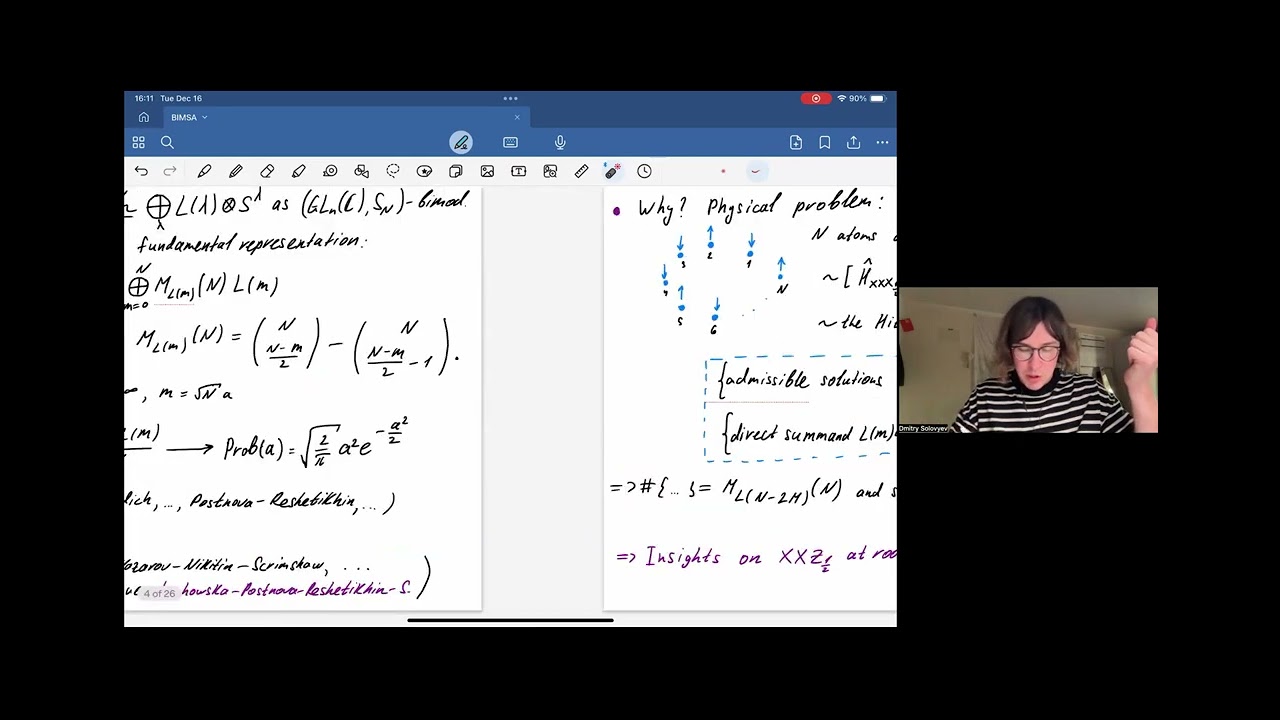 16:11 Tue Dec 16
90%
BIMSA
⊕ L(λ)⊗S^λ as (GLn(C), SN)-bimod.
λ
fundamental representation:
N
⊕ M_L(m) (N) L(m)
m=0
M_L(m) (N) = (N / (N-m)/2) - (N / (N-m)/2 -1).
, m = √N a
L(m) ⟶ Prob(a) = √(2/π) a² e^(-a²/2)
lich, ..., Postnova-Reshetikhin, ...)
Nazarov-Nikitin-Scrimshaw, ...
howska-Postnova-Reshetikhin-S.)
4 of 26
• Why? Physical problem:
N atoms
1
2
3
4
5
6
N
~ [Ĥ_XXX
~ the
{admissible solutions
{direct summand L(m)
=> #{...} = M_L(N-2M) (N) and s
=> Insights on XXZ_1/2 at
Dmitry Solovyev